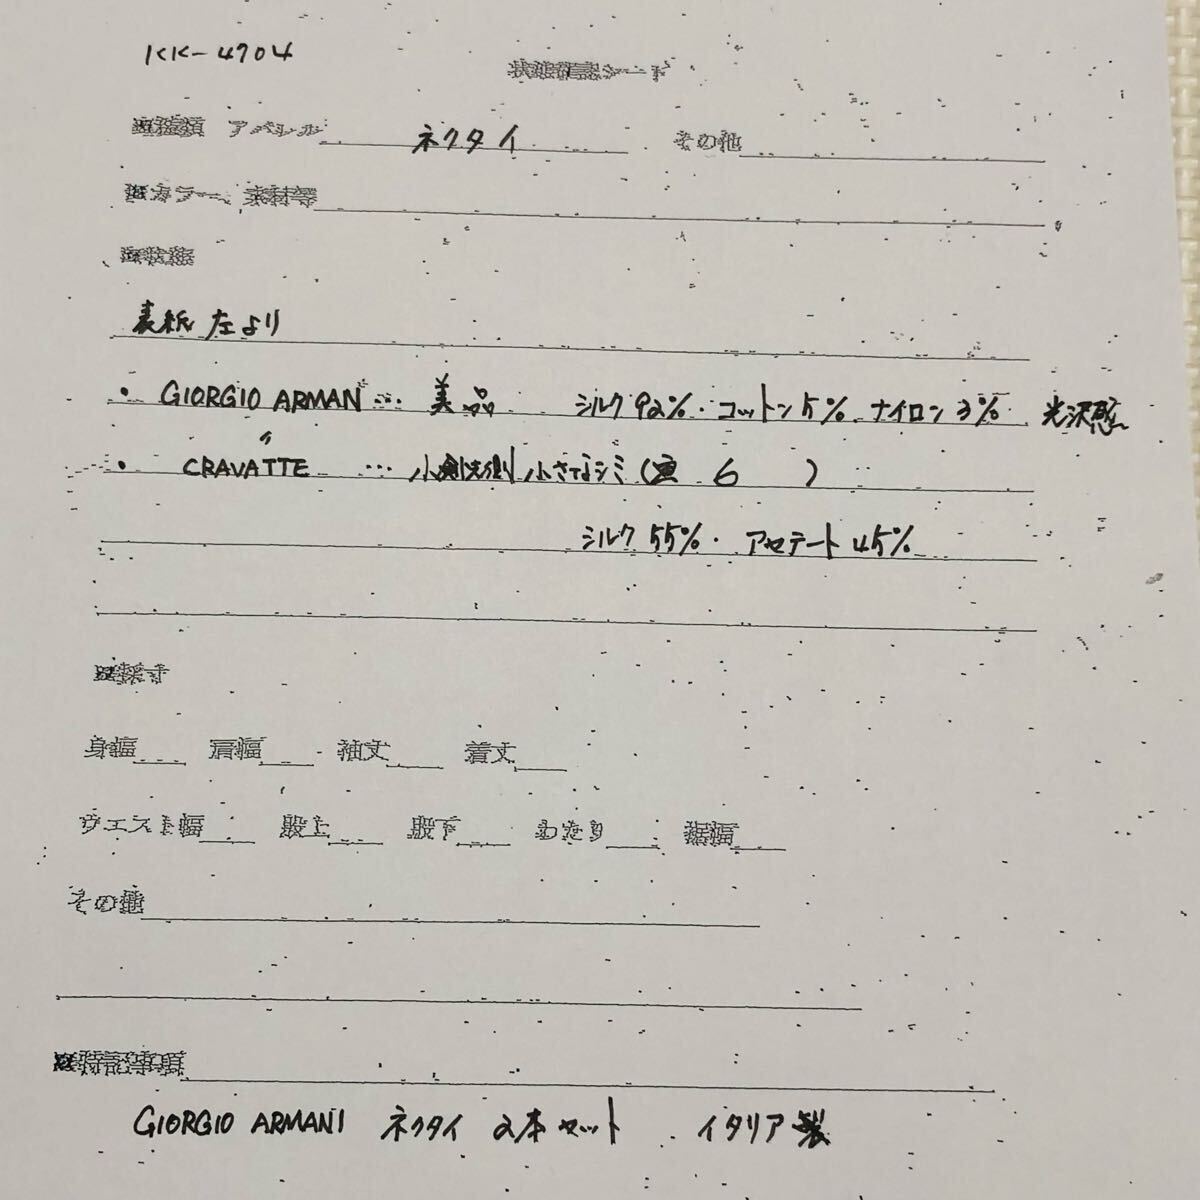 KK-4704
状態確認シート
※種類 アパレル ネクタイ その他
※カラー、素材等
※状態
表紙 左より
・ GIORGIO ARMANI … 美品 シルク92%・コットン5% ナイロン3% 光沢感
〃
・ CRAVATTE … 小剣先側 小さなシミ(画 6 )
シルク55%・アセテート45%
※採寸
身幅 肩幅 袖丈 着丈
ウエスト幅 股上 股下 わたり 裾幅
その他
※特記事項
GIORGIO ARMANI ネクタイ 2本セット イタリア製